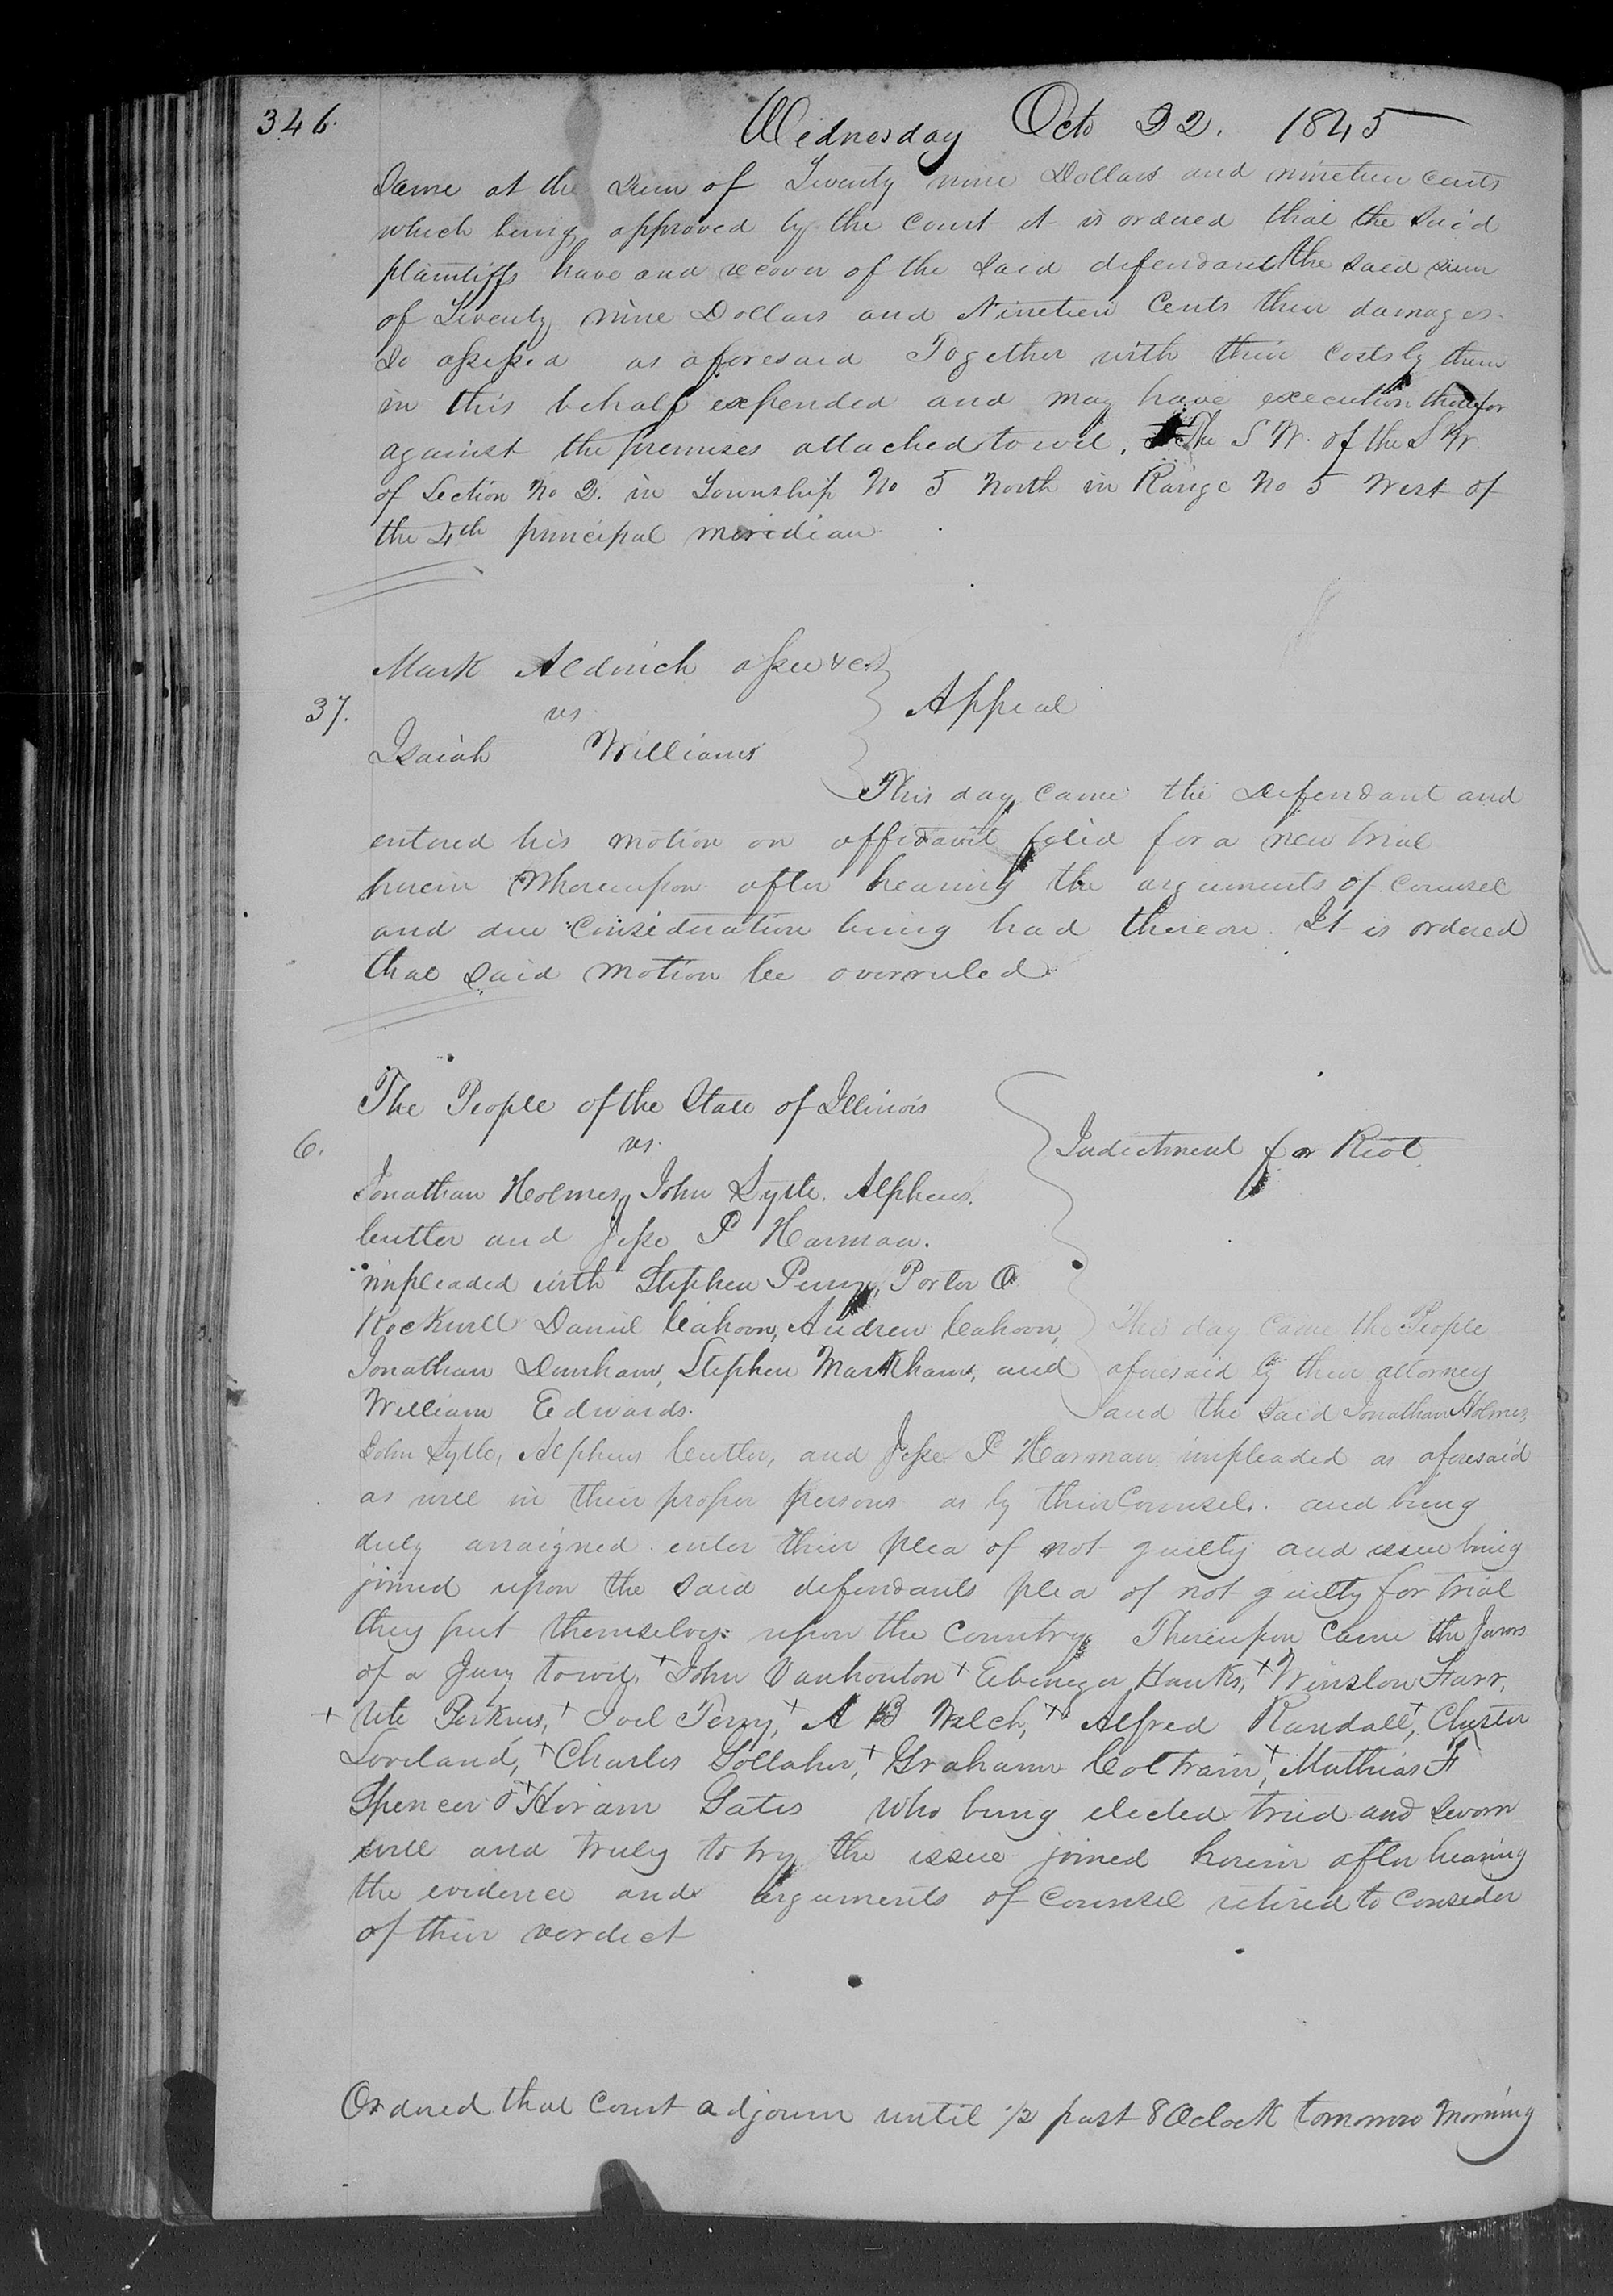 346.
Wednesday Oct 22. 1845
Same at the sum of Twenty nine Dollars and nineteen cents
which being approved by the court it is ordered that the said
plaintiffs have and recover of the said defendant the said sum
of Twenty nine Dollars and Nineteen Cents their damages
so assessed as aforesaid Together with their costs by them
in this behalf expended and may have execution therefor
against the premises attached towit. The S W. of the S W.
of Section No 2. in Township No 5 North in Range No 5 West of
the 4th principal meridian
Mark Aldrich assee &c.
vs
37.
Appeal
Isaiah Williams
This day came the Defendant and
entered his motion on affidavit filed for a new trial
herein Whereupon after hearing the arguments of counsel
and due consideration being had thereon. It is ordered
that said motion be overruled
The People of the State of Illinois
6.
vs.
Indictment for Riot
Jonathan Holmes, John Lytle, Alpheus
Cutler and Jesse P Harman.
impleaded with Stephen Perry, Porter O
Rockwell Daniel Cahoon, Andrew Cahoon,
This day came the People
Jonathan Dunham, Stephen Markham, and
aforesaid by their attorney
William Edwards.
and the said Jonathan Holmes,
John Lytle, Alpheus Cutler, and Jesse P Harman impleaded as aforesaid
as well in their proper persons as by their Counsel. and being
duly arraigned enter their plea of not guilty and issue being
joined upon the said defendants plea of not guilty for trial
they put themselves upon the country. Thereupon came the Jurors
of a Jury towit, + John Vanhouton + Ebenezer Hanks, + Winslow Farr,
+ Ute Perkins, + Joel Terry, + A B Welch, + Alfred Randall, + Chester
Loveland, + Charles Gollaher, + Graham Coltrain, + Mathias F
Spencer & + Hiram Gates who being elected tried and sworn
well and truly to try the issue joined herein after hearing
the evidence and arguments of counsel retired to consider
of their verdict
Ordered that Court adjourn until 1/2 past 8 Oclock tomorrow Morning